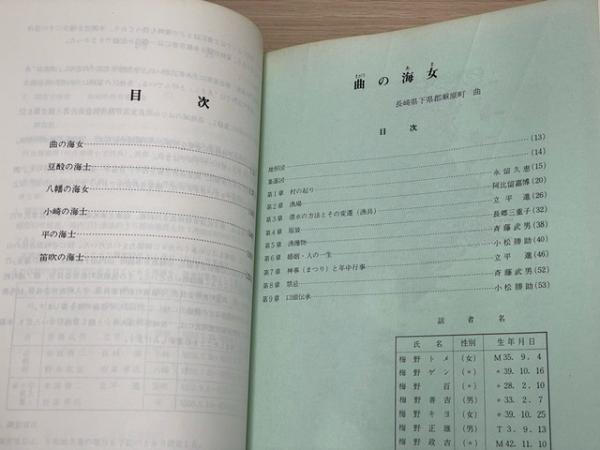 目次
曲の海女
豆酘の海士
八幡の海女
小崎の海士
平の海士
笛吹の海士
曲の海女
まがり
あま
長崎県下県郡厳原町 曲
目次
地形図 (13)
集落図 (14)
第1章 村の起り 永留久恵(15)
第2章 漁場 阿比留嘉博(20)
第3章 潜水の方法とその変遷(漁具) 立平進(26)
第4章 服装 長郷三重子(32)
第5章 漁獲物 斉藤武男(38)
第6章 婚姻・人の一生 小松勝助(40)
第7章 神事(まつり)と年中行事 立平進(46)
第8章 禁忌 斉藤武男(52)
第9章 口頭伝承 小松勝助(53)
話者名
氏名 性別 生年月日
梅野トメ (女) M35. 9. 4
梅野ゲン (〃) 〃39. 10. 16
梅野百 (〃) 〃28. 2. 10
梅野善吉 (男) 〃33. 2. 7
梅野キヨ (女) 〃39. 10. 25
梅野正雄 (男) T 3. 9. 13
梅野政吉 (〃) M42. 11. 10